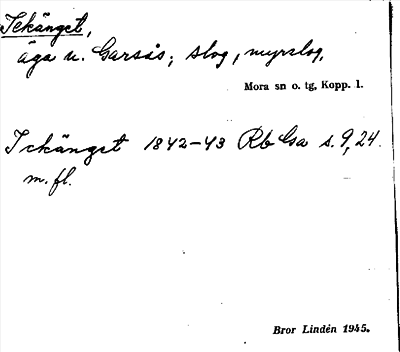 Tekänget,
äga n. Garsås; slog, myrslog,
Mora sn o. tg, Kopp. l.
Tekänget 1842-43 Rb Gsa s. 9, 24.
m. fl.
Bror Lindén 1945.